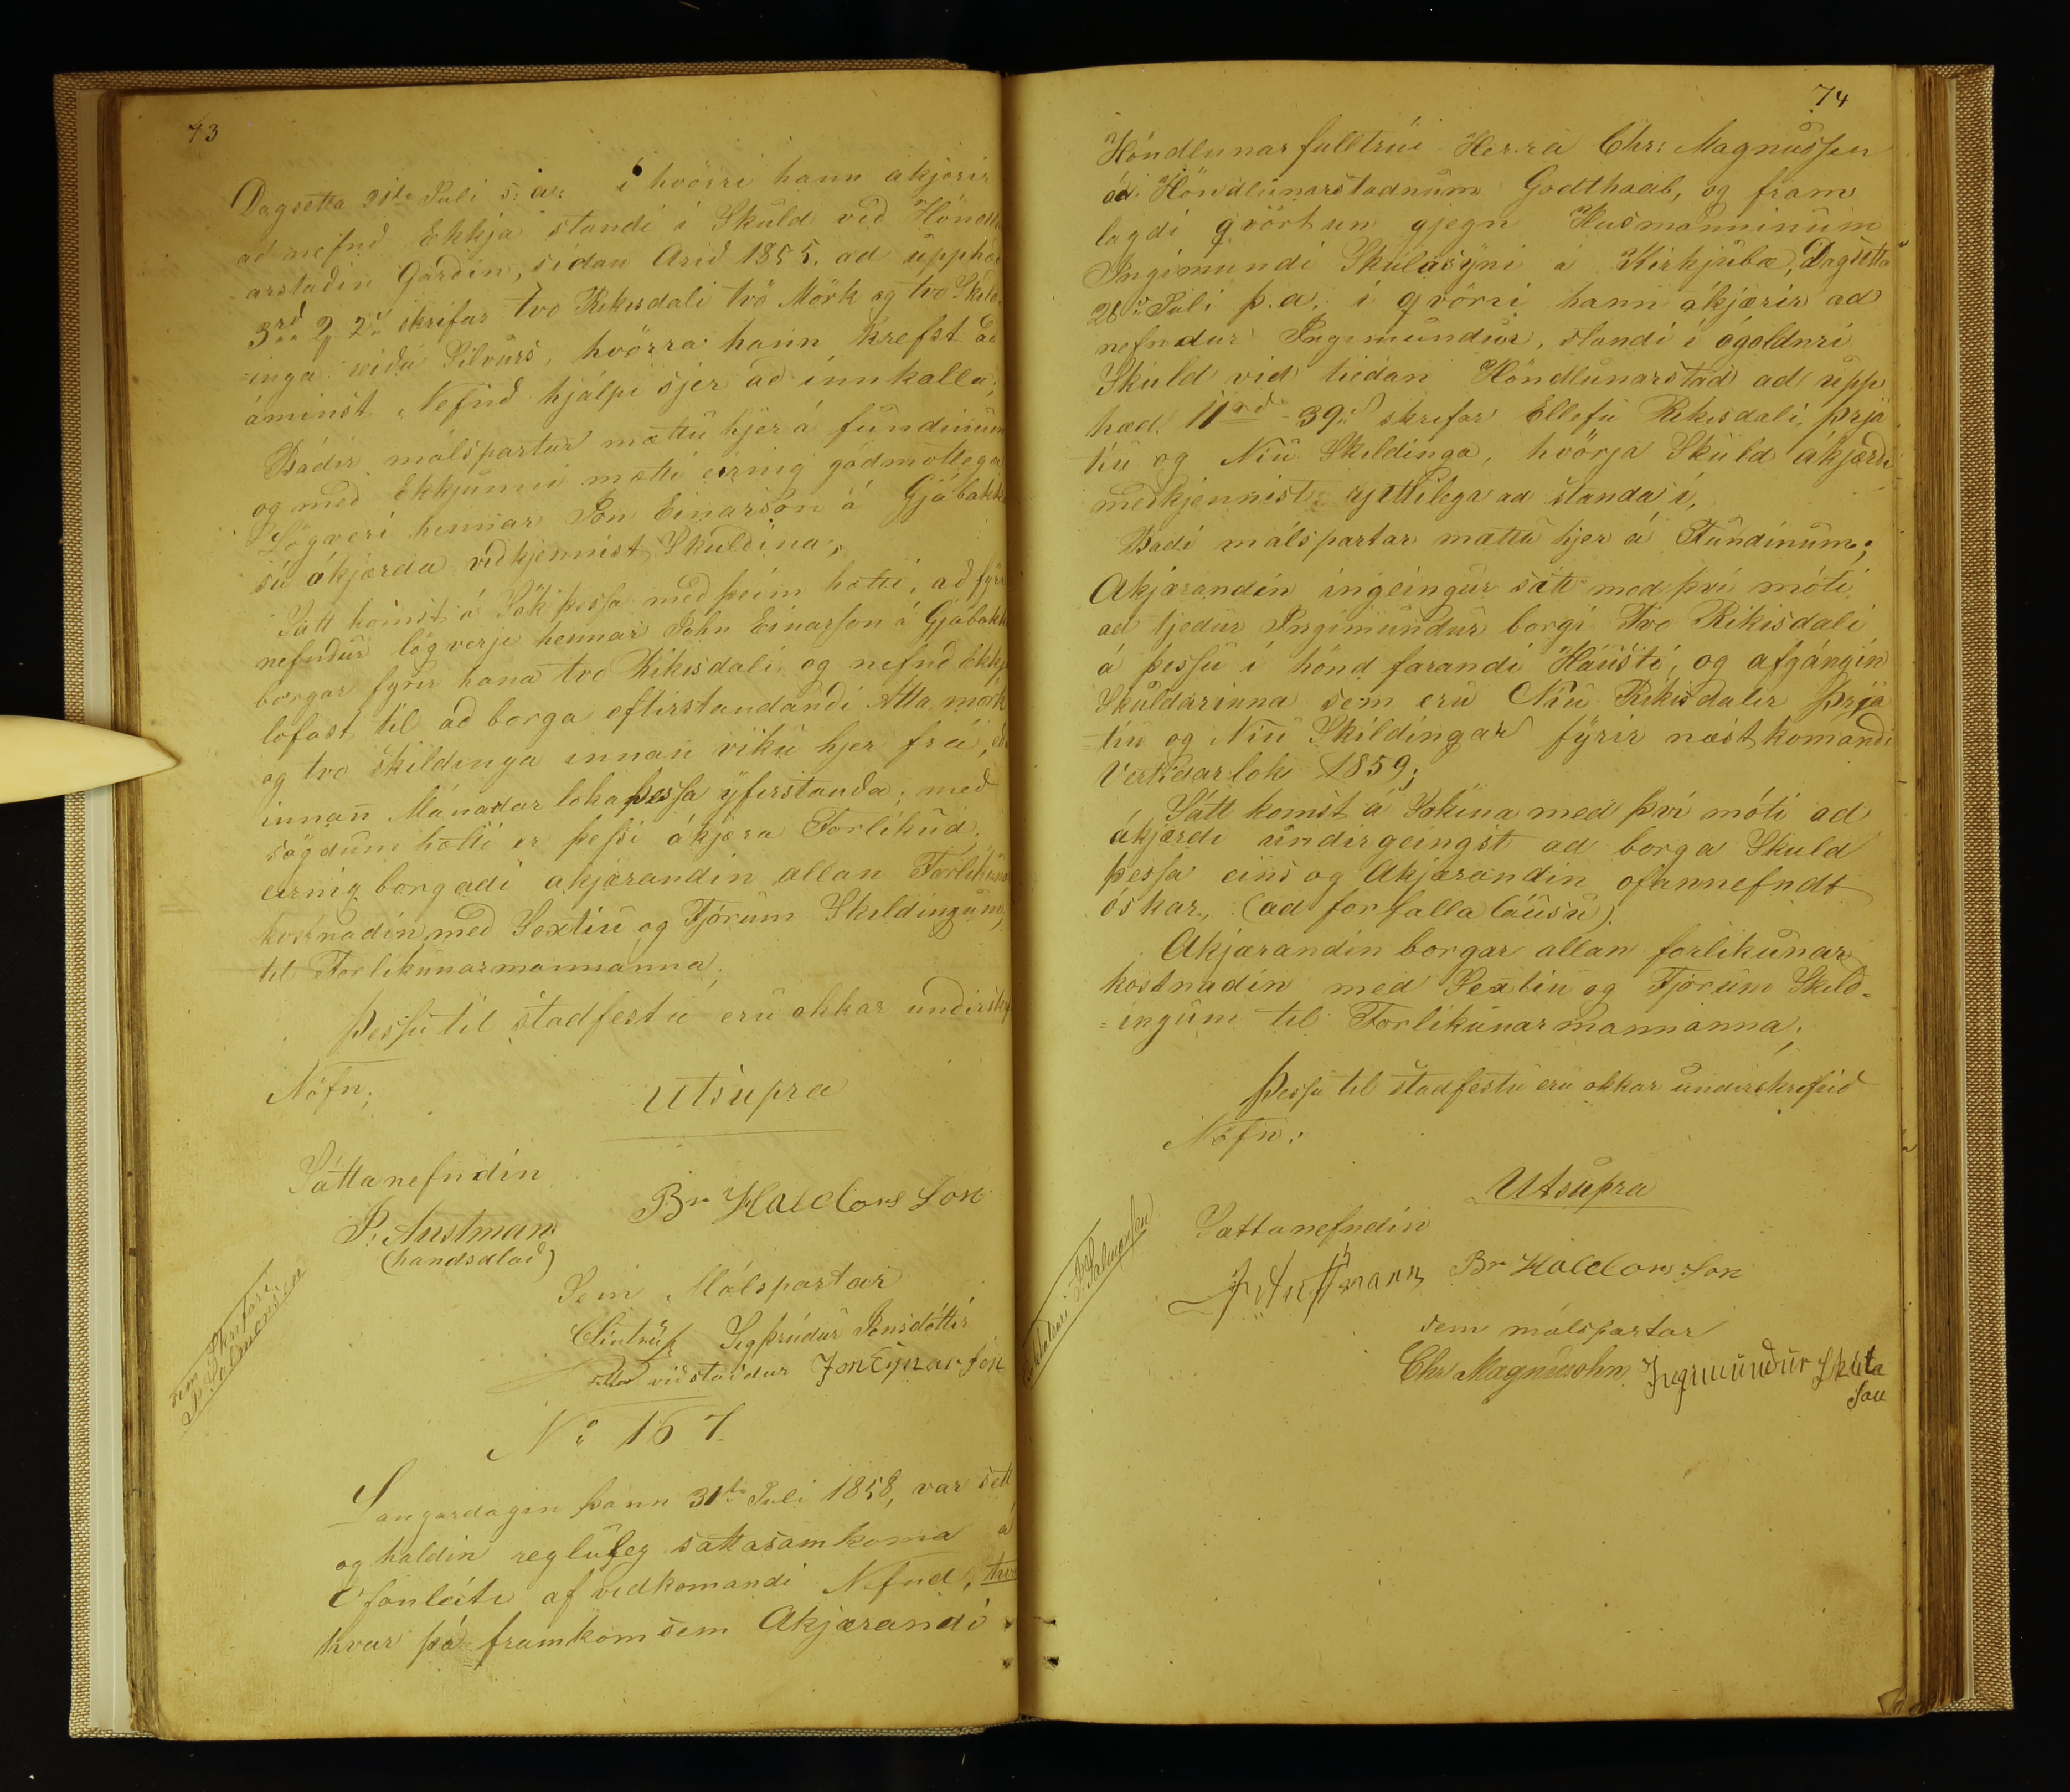 73
Dagsetta 21ta Juli s: a: í hvörri hann akjærir
ad nefnð Ekkja standi i Skuld við Höndlu
arstaðin Garðin, síðan Arið 1855. ad upphæð
3rd 2 2s skrifar tvo Rikisdali tvö Mörk og tvo Skild-
-inga Silvurs, hvörra hann krefst að
áminst Nefnð hjálpi sjer að innkalla;
Báðir málspartar mættu hjer á fundinum
og með Ekkjunni mætti einnig góðmótlega
Lögveri hennar Jón Einarson á Gjábakka
sú ákjærda viðkjennist Skuldina,
Sátt komst á Sök þessa með þeim hætti, að fyrr
nefndur lögverje hennar John Einarson á Gjábakka
borgar fyrir hana tvo Rikisdali og nefnð Ekkja
lofast til að borga eftirstandandi Atta mörk
og tvo skildinga innan viku hjer frá, eða
innan Mánadar loka þessa yfirstanða; með
sögdum hætti er þessi ákjæra Forlikud,
einnig borgadi akjærandin allan Forlikunar
kostnadin með Sextiu og Fjórum Skildingum,
til Forlikunarmannanna;
Þessu til stadfestu eru okkar undirskr
Nöfn;
Utsupra
Sáttanefndin
P. Austmann
(handsalað)
Br Haldorsson
Sem Skrifari
J. Salmonsen
Sem Málspartar
CGintrup Sigþrúdur Jonsdóttir
viðstaddur Jon Eynarson
No 167
Laugardagin þann 31ta Juli 1858, var sett
og haldin regluleg sattasamkoma á
Ofanleiti af vidkomandi Nefnd,
hvar þá framkom sem Akjærandi
74
Höndlunarfulltrúi Herra Chr: Magnussen
á Höndlunarstadnum Godthaab, og fram
lagdi qvörtun gjegn Husmanninum
Ingimundi Skúlasyni á Kirkjubæ, Dagsetta
28s Juli þ.a. i qvörri hann ákjærir ad
nefndur Ingimundur, standi i ógoldnri
Skuld vid tiedan Höndlunarstad ad upp
hæd. 11rd 39s skrifar Ellefu Rikisdali, þrjá
tiu og Niu Skildinga, hvörja Skuld ákjærdi
medkjennist rjettilega ad standa i,
Badi málspartar mættu hjer á Fundinum;
Akjærandin ingeingur sátt med því móti,
ad tjedur Ingimundur borgi Tvo Rikisdali
á þessu i hönd farandi Hausti, og afgángin
Skuldarinna sem eru Niu Rikisdalir þrjá
-tiu og Niu Skildingar fyrir næstkomandi
Vertidarlok 1859;
Sátt komst á Sökina med því móti ad
ákjærdi undirgeingst ad borga Skuld
þessa eins og Akjærandin ofannefndt
óskar, (ad forfallalausu).
Akjærandin borgar allan forlikunar
kostnadin med Sextiu og Fjórum Skild-
-ingum til Forlikunarmannanna;
Þessu til stadfestu eru okkar undirskrifud
Nöfn:
Utsupra
Sattanefndin
P. Austmann Br Haldorsson
J. Salmonsen
sem málspartar
Chr Magnusohn Ingimundur Skula
son